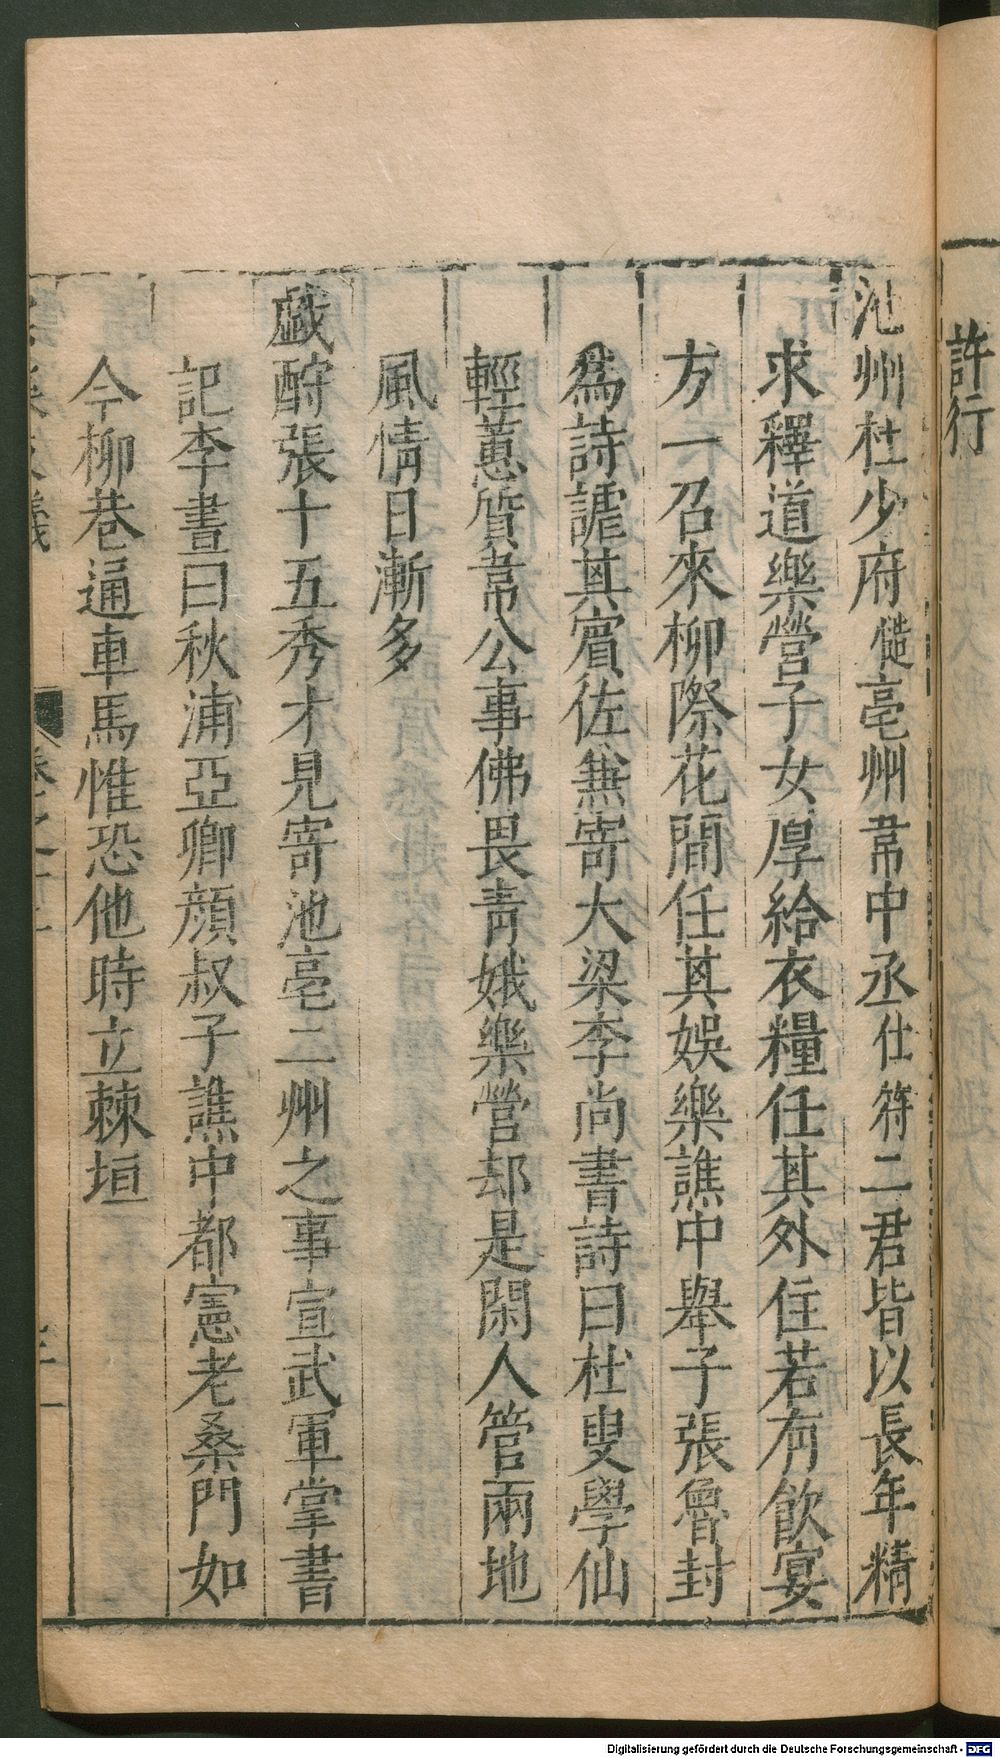 許行
池州杜少府慥亳州韋中丞仕符二君皆以長年精
求釋道樂營子女厚給衣糧任其外住若有飲宴
方一召來柳際花間任其娛樂譙中舉子張魯封
為詩謔其賓佐兼寄大梁李尚書詩曰杜叟學仙
輕蕙質韋公事佛畏青娥樂營却是閑人管兩地
風情日漸多
戯酧張十五秀才見寄池亳二州之事宣武軍掌書
記李晝曰秋浦亞卿顏叔子譙中都憲老桑門如
今柳巷通車馬惟恐他時立棘垣
Digitalisierung gefördert durch die Deutsche Forschungsgemeinschaft - DFG